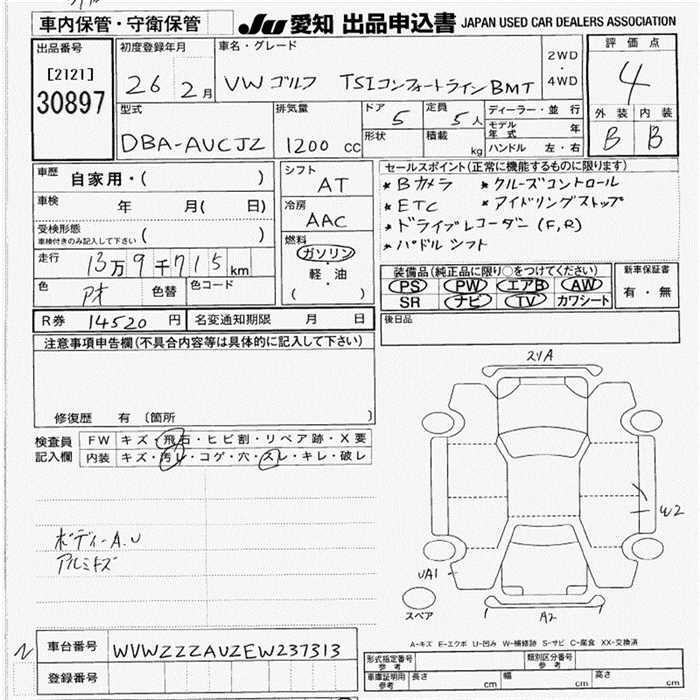 車内保管・守衛保管
JU 愛知 出品申込書 JAPAN USED CAR DEALERS ASSOCIATION
出品番号
[2121]
30897
初度登録年月
26 2月
車名・グレード
VW ゴルフ TSIコンフォートライン BMT
2WD
・
4WD
評価点
4
外装 内装
B B
型式
DBA-AUCJZ
排気量
1200 CC
ドア 5
形状
定員 5人
積載 kg
ディーラー・並行
モデル年式 年
ハンドル 左・右
車歴 自家用・( )
車検 年 月( 日)
受検形態
車検付きのみ記入して下さい ( )
走行 13万9千715km
色 アオ 色替 色コード
シフト
AT
冷房
AAC
燃料
ガソリン
・
軽・油
( )
セールスポイント(正常に機能するものに限ります)
* Bカメラ * クルーズコントロール
* ETC * アイドリングストップ
* ドライブレコーダー(F,R)
* パドルシフト
装備品(純正品に限り○をつけてください)
PS PW エアB AW
SR ナビ TV カワシート
新車保証書
有・無
R券 14520円 名変通知期限 月 日
後日品
注意事項申告欄(不具合内容等は具体的に記入して下さい)
修復歴 有 〔箇所 〕
検査員記入欄
FW キズ・飛石・ヒビ割・リペア跡・X要
内装 キズ・汚レ・コゲ・穴・スレ・キレ・破レ
ボディーA.U
アルミキズ
スリA
W2
UA1
スペア
A2
A-キズ E-エクボ U-凹み W-補修跡 S-サビ C-腐食 XX-交換済
N
車台番号 WVWZZZAUZEW237313
登録番号
形式指定番号 参考
類別区分番号 参考
車庫証明用 参考 長さ cm 幅 cm 高さ cm